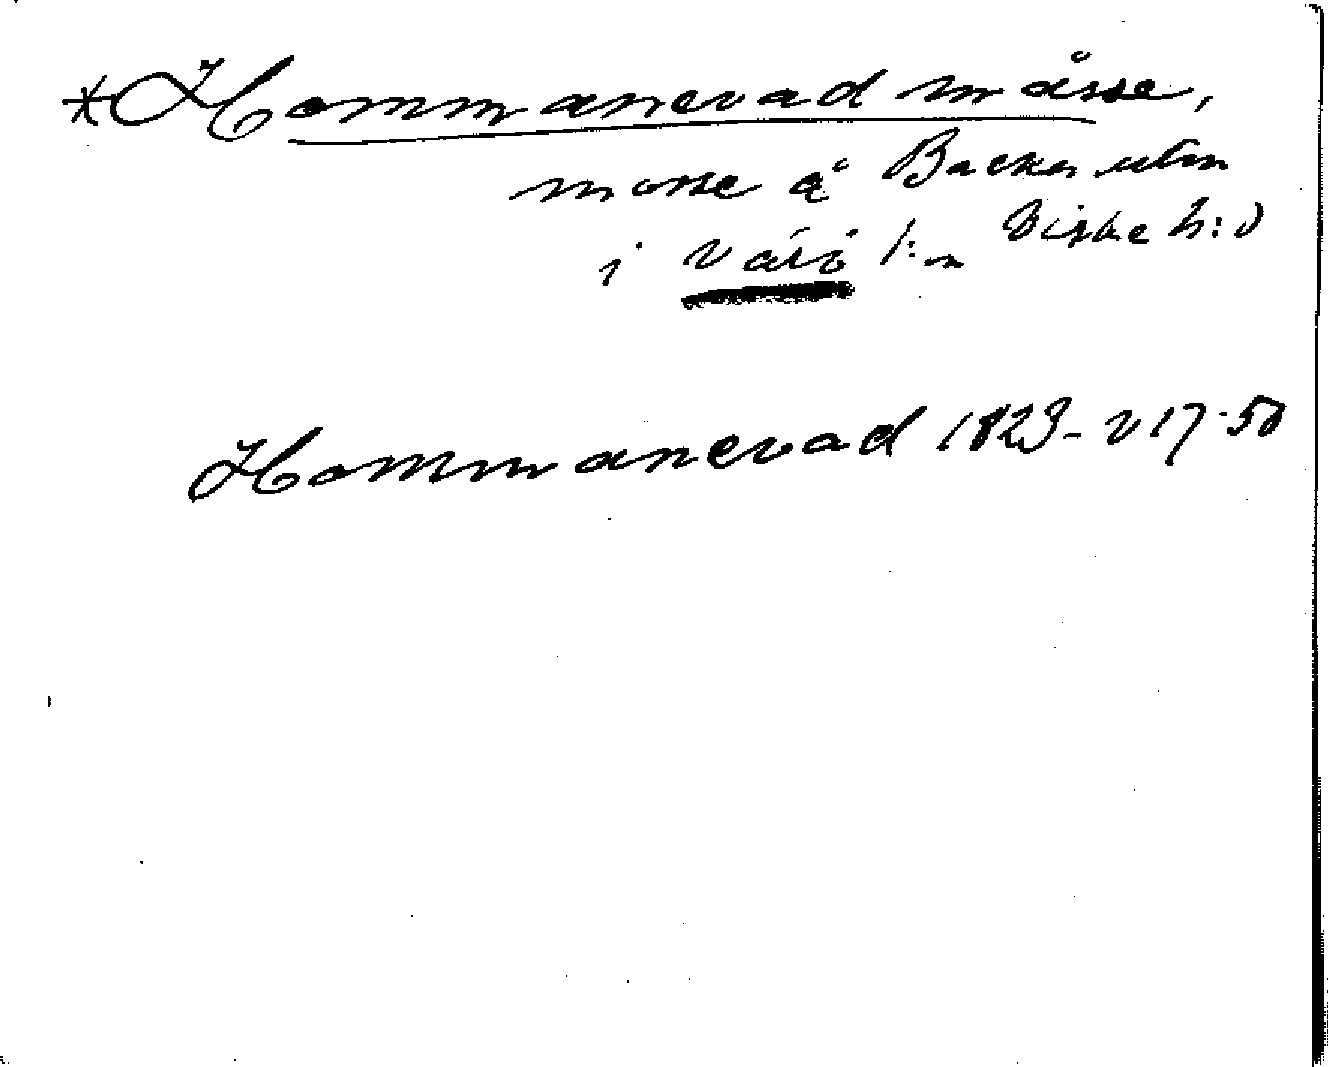 *Hommanevad måsse,
mosse å Backa utm
i Värö s:n Viske h:d
Hommanevad 1823 - V 17-50